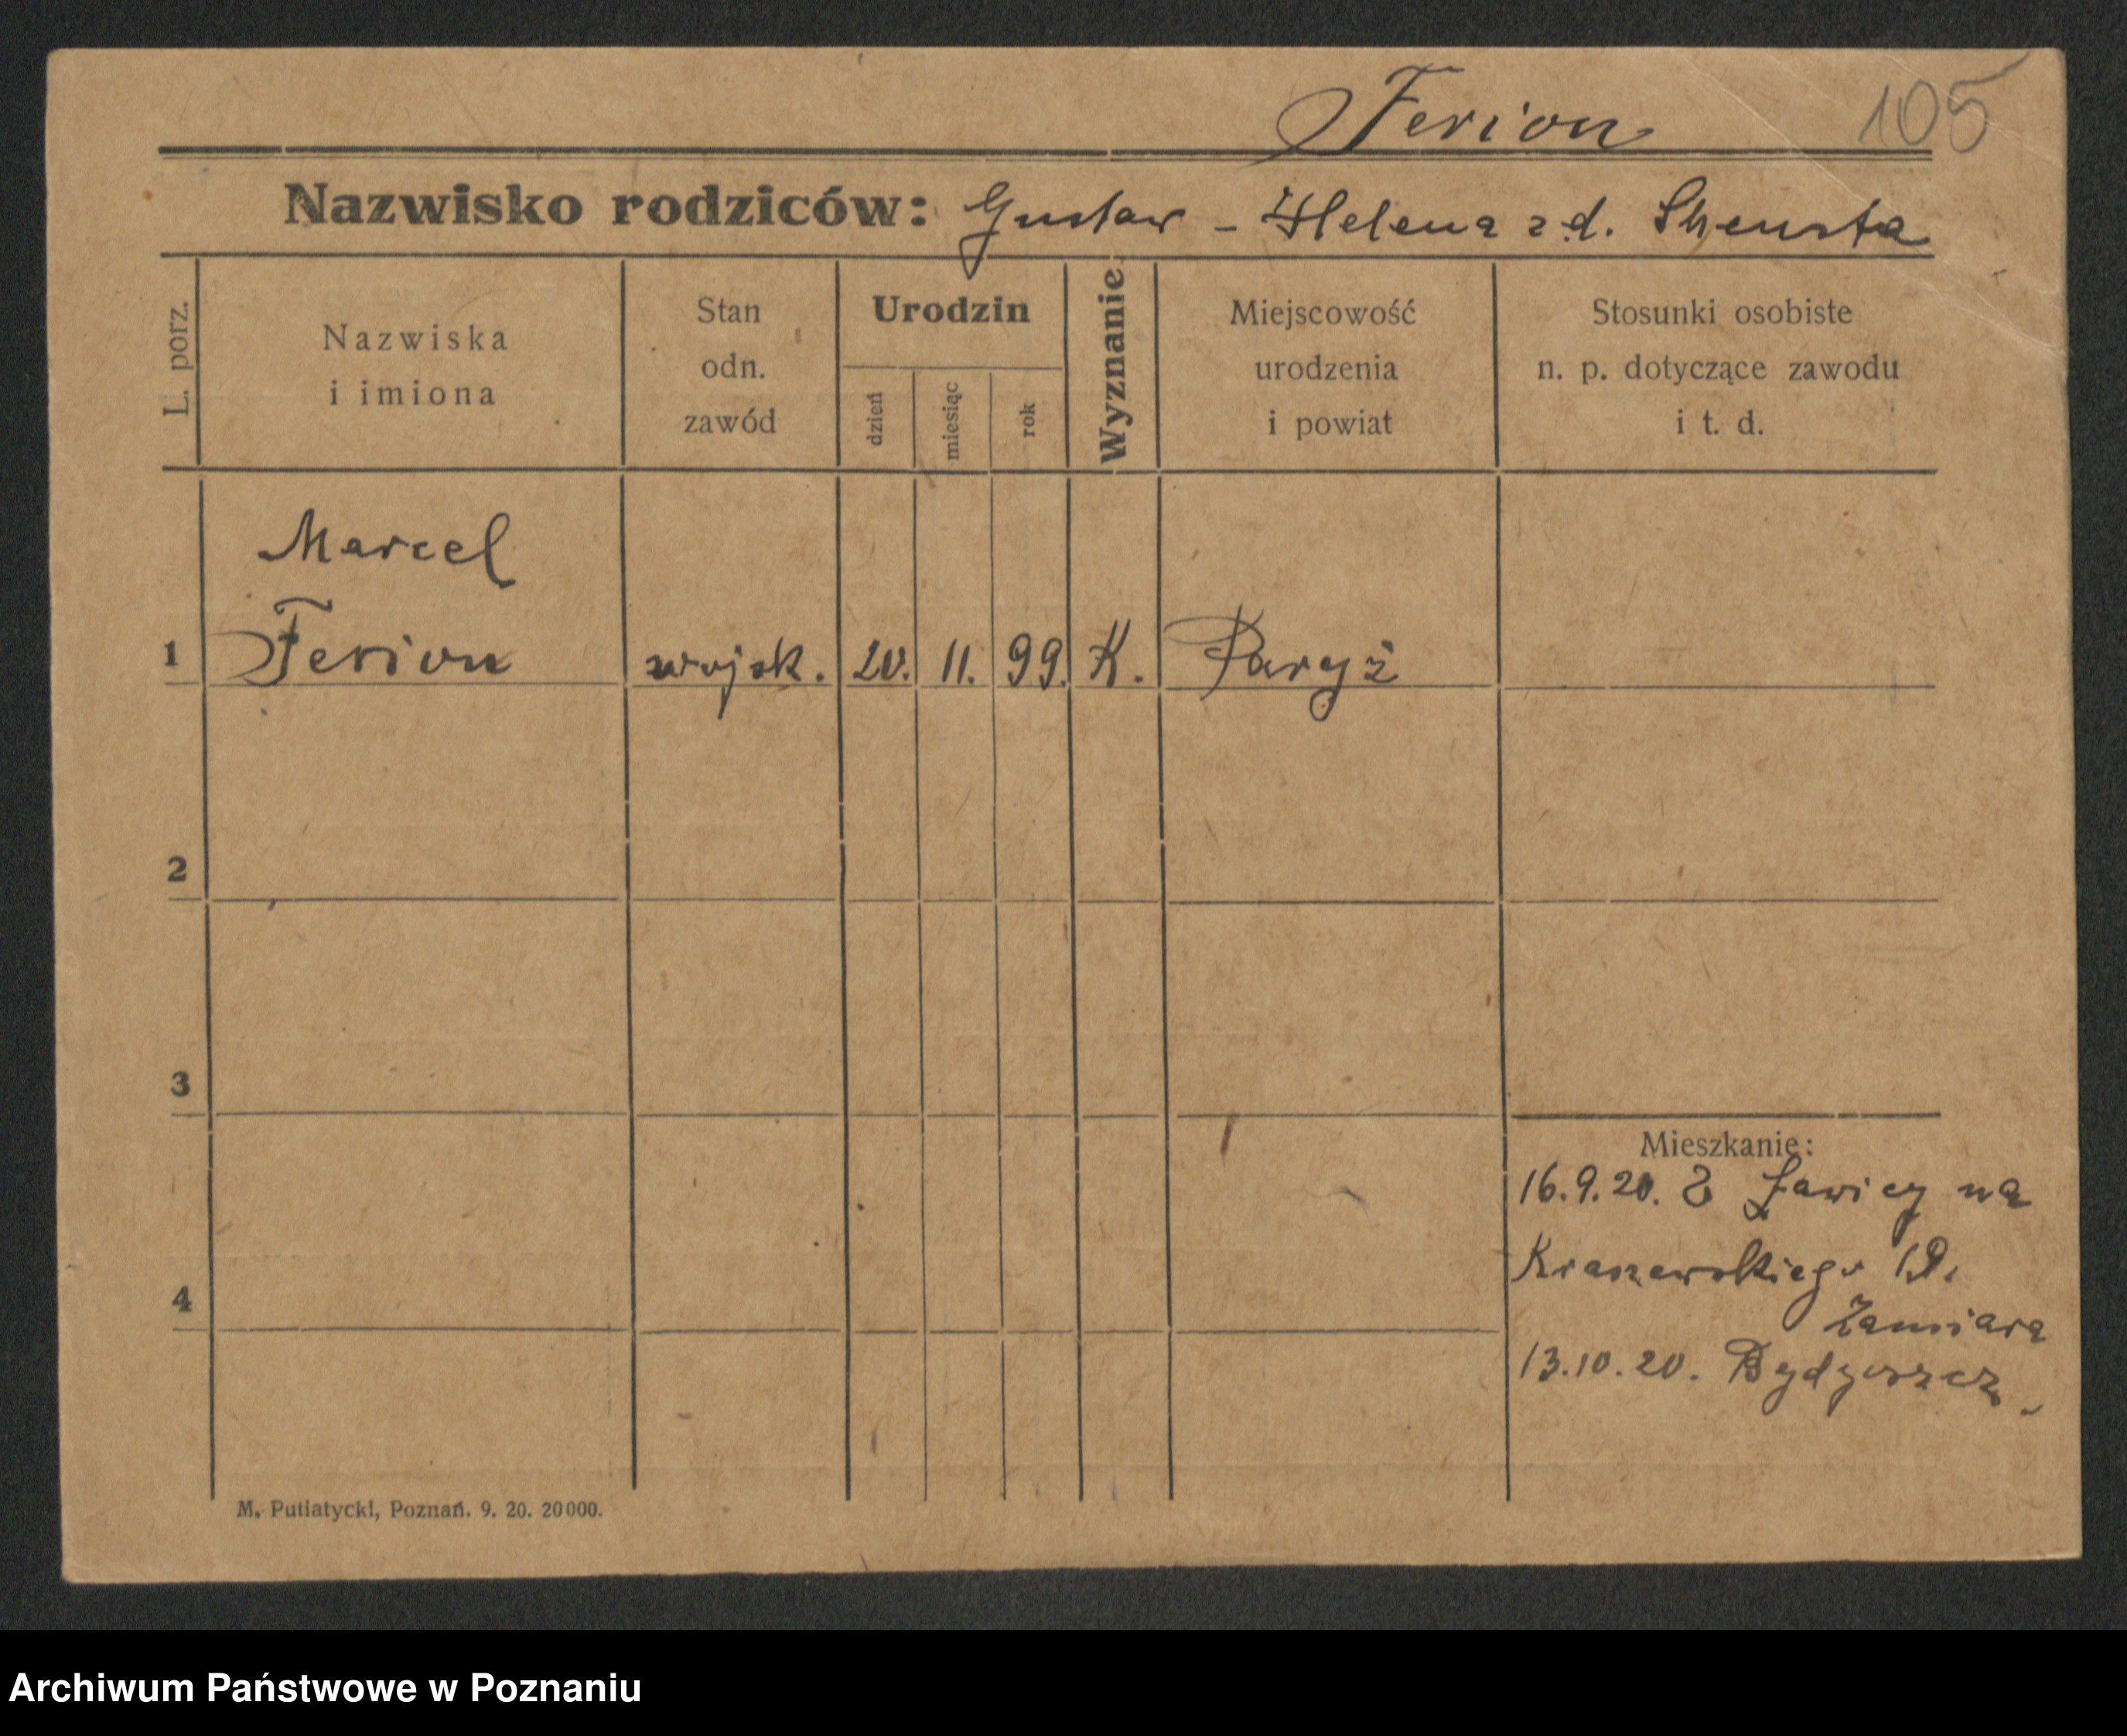 Ferion 105
Nazwisko rodziców: Gustaw - Helena z d.
L. porz.
Nazwiska
i imiona
Stan
odn.
zawód
Urodzin
dzień
miesiąc
rok
Wyznanie
Miejscowość
urodzenia
i powiat
Stosunki osobiste
n. p. dotyczące zawodu
i t. d.
Marcel
1 Ferion wojsk. 20. 11. 99. K. Paryż
2
3
Mieszkanie:
16.9.20. Z Ławicy na
Kraszewskiego 19.
4
Zamiara
13.10.20. Bydgoszcz
M. Putiatycki, Poznań. 9. 20. 20000.
Archiwum Państwowe w Poznaniu